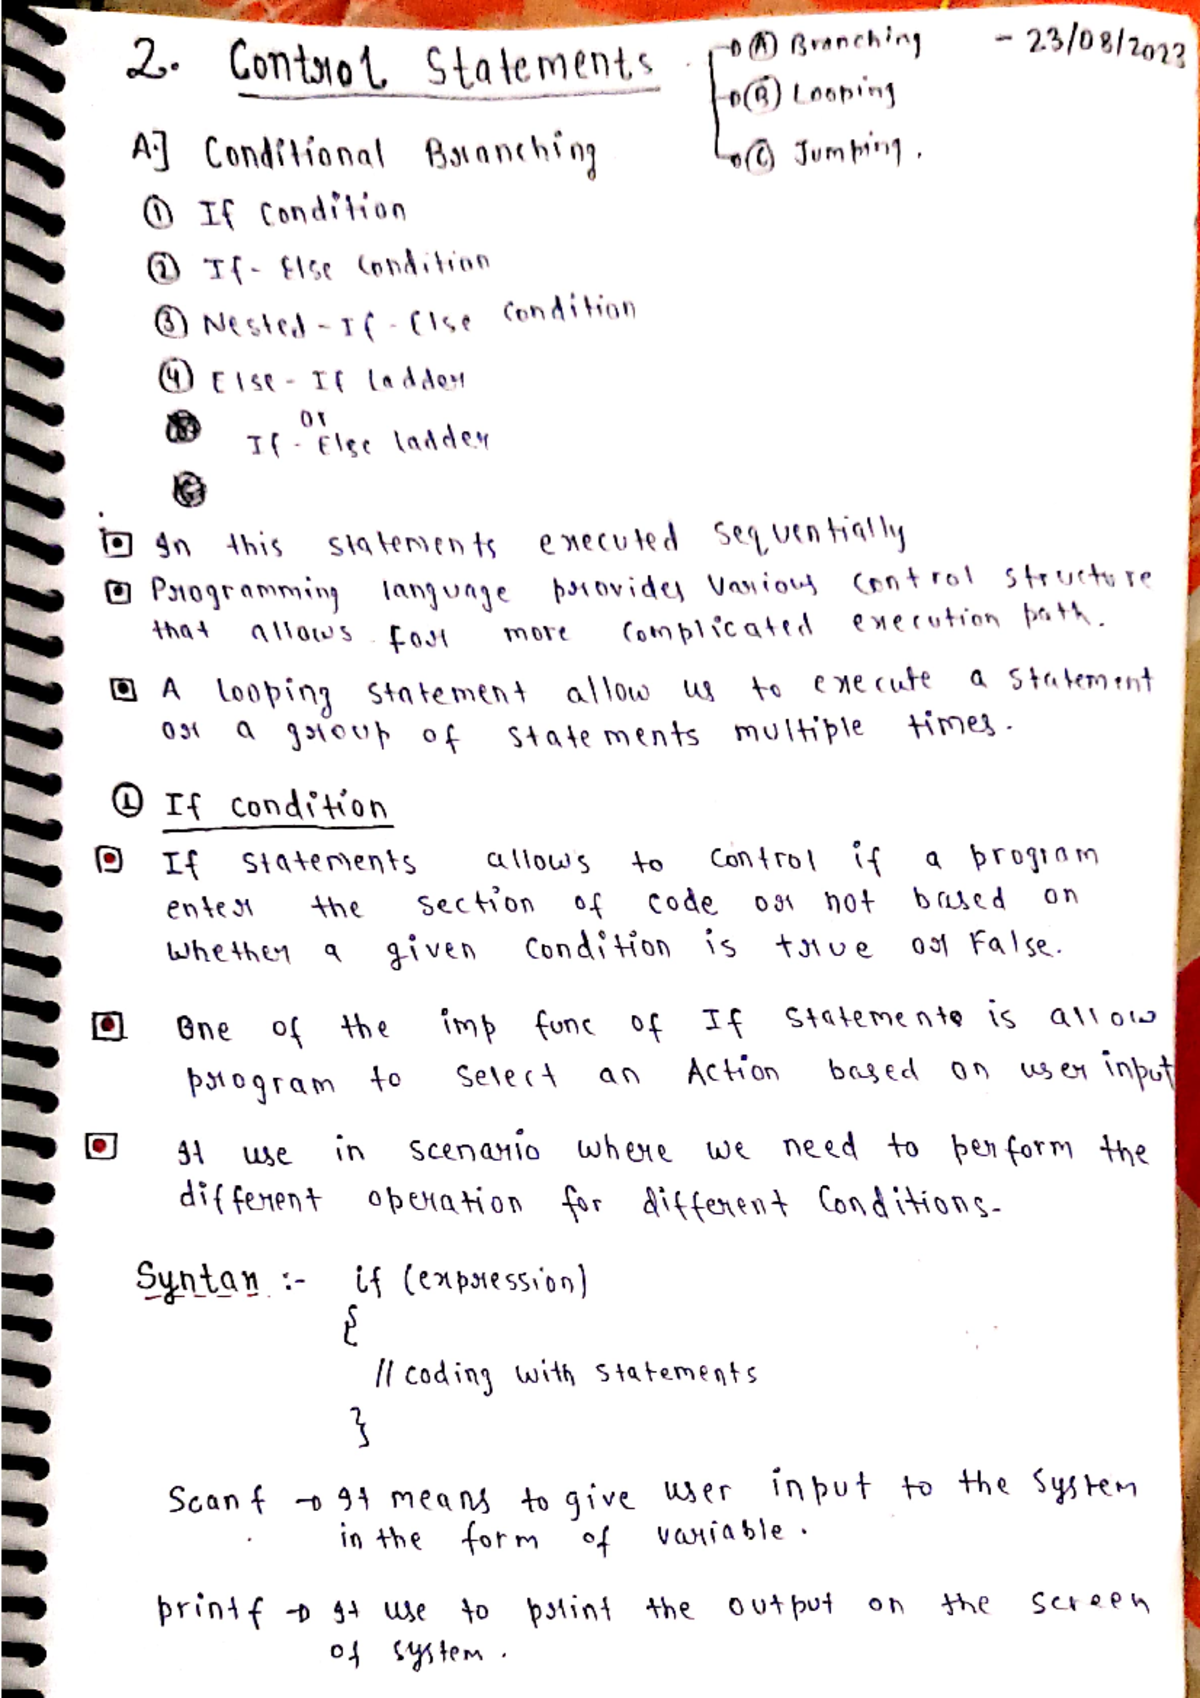 2. Control Statements
(A) Branching
- 23/08/2023
(B) Looping
(C) Jumping.
A.] Conditional Branching
① If Condition
② If - Else Condition
③ Nested - If - Else Condition
④ Else - If ladder
or
If - Else ladder
In this statements executed sequentially
Programming language provides various control structure
that allows for more complicated execution path.
A looping statement allow us to execute a statement
or a group of statements multiple times.
① If condition
If statements allows to control if a program
enter the section of code or not based on
whether a given condition is true or False.
One of the imp func of If statements is allow
program to select an Action based on user input
It use in scenario where we need to perform the
different operation for different Conditions-
Syntax :- if (expression)
{
// coding with statements
}
Scanf → It means to give user input to the system
in the form of variable.
printf → It use to print the output on the screen
of system.